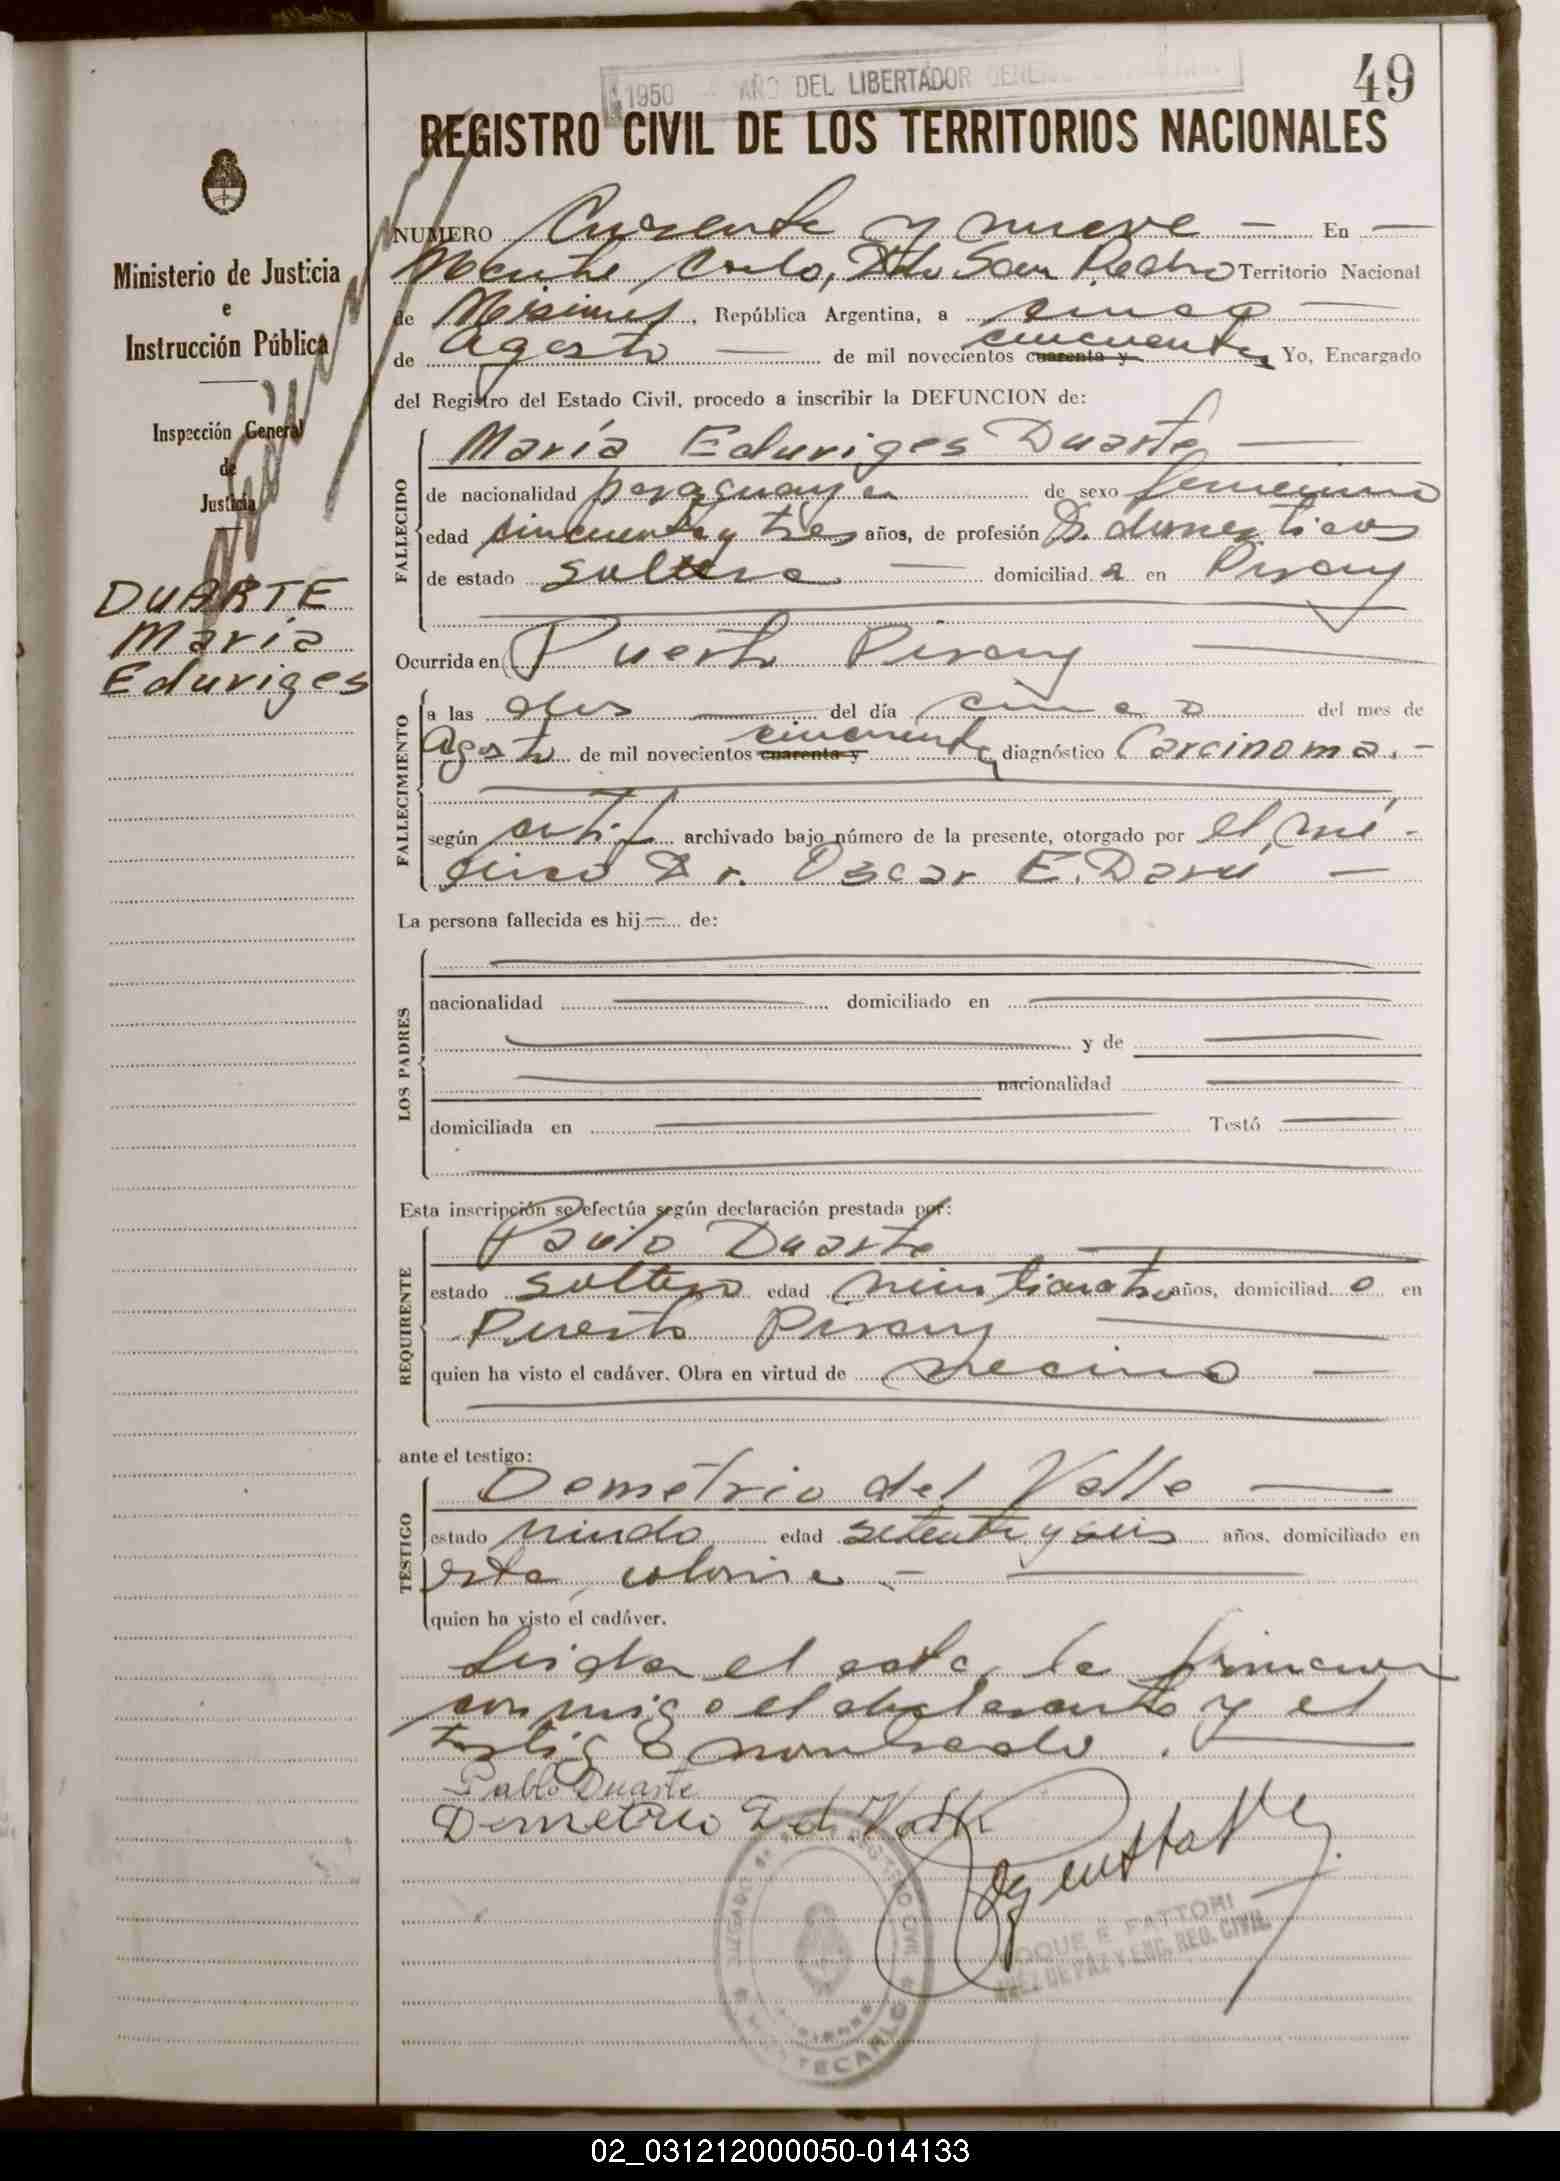 1950 - AÑO DEL LIBERTADOR GENERAL
49
REGISTRO CIVIL DE LOS TERRITORIOS NACIONALES
Ministerio de Justicia
e
Instrucción Pública
Inspección General
de
Justicia
DUARTE
María
Eduviges
NUMERO Cuarenta y nueve - En -
Monte Carlo, Dto San Pedro Territorio Nacional
de Misiones, República Argentina, a cinco
de Agosto de mil novecientos cuarenta y cincuenta, Yo, Encargado
del Registro del Estado Civil, procedo a inscribir la DEFUNCION de:
FALLECIDO
María Eduviges Duarte
de nacionalidad paraguaya de sexo femenino
edad cincuenta y tres años, de profesión Q. domesticos
de estado soltera domiciliad a en Piray
Ocurrida en Puerto Piray
FALLECIMIENTO
a las dos del día cinco del mes de
Agosto de mil novecientos cuarenta y cincuenta, diagnóstico Carcinoma. -
según certif. archivado bajo número de la presente, otorgado por el mé-
dico Dr. Oscar E. Darú -
La persona fallecida es hij - de:
LOS PADRES
nacionalidad domiciliado en
y de
nacionalidad
domiciliada en Testó
Esta inscripción se efectúa según declaración prestada por:
REQUIRENTE
Pablo Duarte
estado soltero edad veinticuatro años, domiciliad o en
Puerto Piray
quien ha visto el cadáver. Obra en virtud de vecino -
ante el testigo:
TESTIGO
Demetrio del Valle
estado viudo edad setenta y seis años, domiciliado en
esta colonia. -
quien ha visto el cadáver.
Leida el acta, la firmaron
conmigo el declarante y el
testigo nombrado.
Pablo Duarte
Demetrio Del Valle
ROQUE E. FATTORI
JUEZ DE PAZ Y ENC. REG. CIVIL
REGISTRO CIVIL
MISIONES
MONTECARLO
02_031212000050-014133